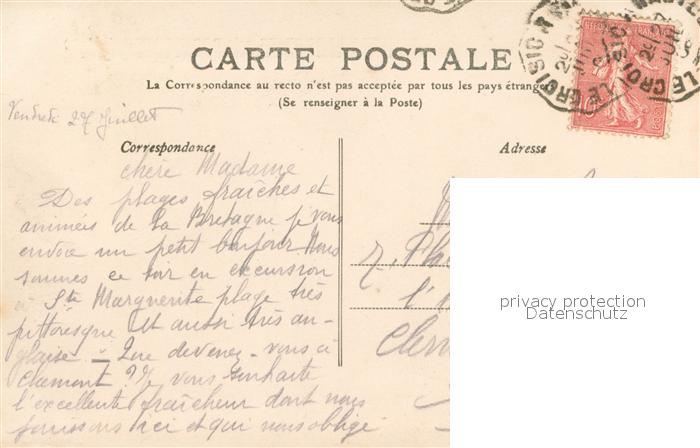 CARTE POSTALE
La Correspondance au recto n'est pas acceptée par tous les pays étrangers
(Se renseigner à la Poste)
Vendredi 27 Juillet
Correspondance
Adresse
chere Madame
Des plages fraîches et
animées de la Bretagne je vous
envoie un petit bonjour Nous
sommes ce soir en excursion
à Ste Marguerite plage très
pittoresque et aussi très an-
glaise - Que devenez-vous à
Clermont? Je vous souhaite
l'excellente fraîcheur dont nous
jouissons ici et qui nous oblige
Pla
l'
Cler
LE CROISIC
privacy protection
Datenschutz